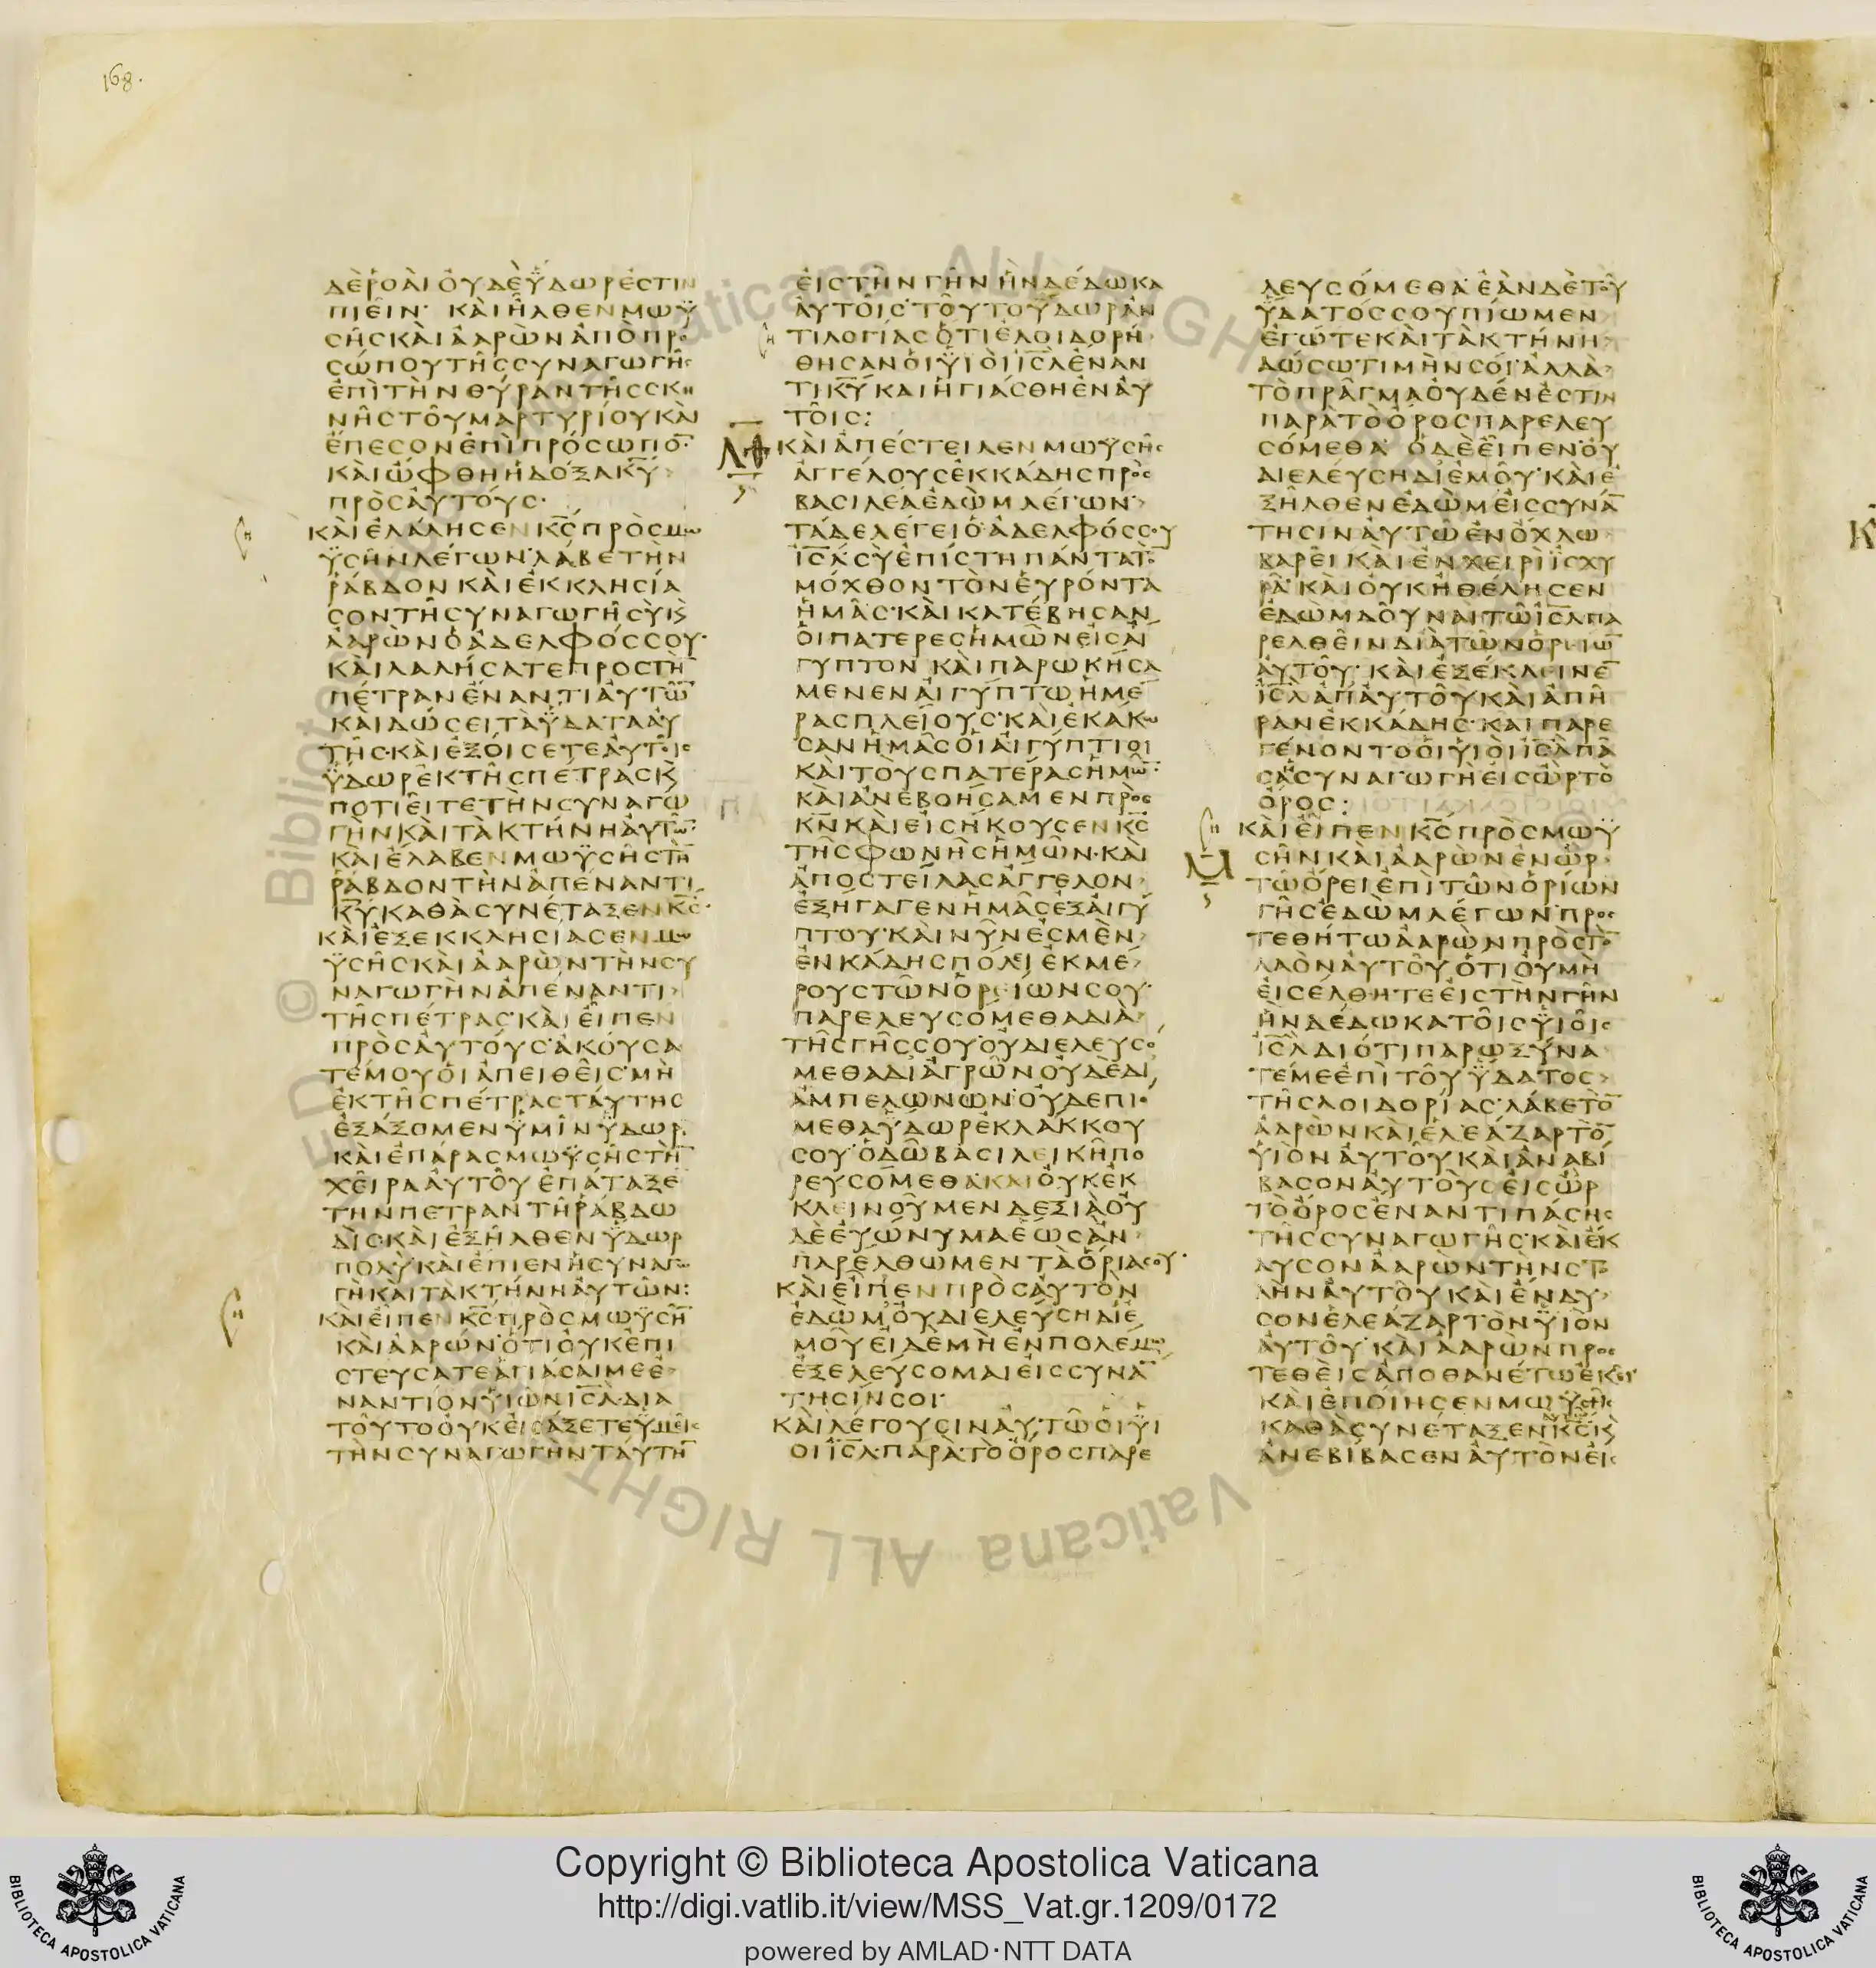 168.
ΔΕΡΟΑΙΟΥΔΕΫΔΩΡΕΣΤΙΝ
ΠΙΕΙΝ· ΚΑΙΗΛΘΕΝΜΩΫ
ΣΗΣΚΑΙΑΑΡΩΝΑΠΟΠΡΟ
ΣΩΠΟΥΤΗΣΣΥΝΑΓΩΓΗΣ
ΕΠΙΤΗΝΘΥΡΑΝΤΗΣΣΚΗ
ΝΗΣΤΟΥΜΑΡΤΥΡΙΟΥΚΑΙ
ΕΠΕΣΟΝΕΠΙΠΡΟΣΩΠΟ̅·
ΚΑΙΩΦΘΗΗΔΟΞΑΚ̅Υ̅
ΠΡΟΣΑΥΤΟΥΣ·
ΚΑΙΕΛΑΛΗΣΕΝΚ̅Σ̅ΠΡΟΣΜΩ
ΫΣΗΝΛΕΓΩΝ·ΛΑΒΕΤΗΝ
ΡΑΒΔΟΝΚΑΙΕΚΚΛΗΣΙΑ
ΣΟΝΤΗΣΥΝΑΓΩΓΗΣΥϏ
ΑΑΡΩΝΟΑΔΕΛΦΟΣΣΟΥ·
ΚΑΙΛΑΛΗΣΑΤΕΠΡΟΣΤΗ̅
ΠΕΤΡΑΝΕΝΑΝΤΙΑΥΤΩ̅
ΚΑΙΔΩΣΕΙΤΑΫΔΑΤΑΑΥ
ΤΗΣ·ΚΑΙΕΞΟΙΣΕΤΕΑΥΤΟΙΣ
ΫΔΩΡΕΚΤΗΣΠΕΤΡΑΣϏ
ΠΟΤΙΕΙΤΕΤΗΝΣΥΝΑΓΩ
ΓΗΝΚΑΙΤΑΚΤΗΝΗΑΥΤΩ̅·
ΚΑΙΕΛΑΒΕΝΜΩΫΣΗΣΤΗ̅
ΡΑΒΔΟΝΤΗΝΑΠΕΝΑΝΤΙ
Κ̅Υ̅ΚΑΘΑΣΥΝΕΤΑΞΕΝΚ̅Σ̅·
ΚΑΙΕΞΕΚΚΛΗΣΙΑΣΕΝΜΩ
ΫΣΗΣΚΑΙΑΑΡΩΝΤΗΝΣΥ
ΝΑΓΩΓΗΝΑΠΕΝΑΝΤΙ
ΤΗΣΠΕΤΡΑΣ·ΚΑΙΕΙΠΕΝ
ΠΡΟΣΑΥΤΟΥΣ·ΑΚΟΥΣΑ
ΤΕΜΟΥΟΙΑΠΕΙΘΕΙΣ·ΜΗ
ΕΚΤΗΣΠΕΤΡΑΣΤΑΥΤΗΣ
ΕΞΑΞΟΜΕΝΫΜΙΝΫΔΩΡ·
ΚΑΙΕΠΑΡΑΣΜΩΫΣΗΣΤΗ̅
ΧΕΙΡΑΑΥΤΟΥΕΠΑΤΑΞΕ
ΤΗΝΠΕΤΡΑΝΤΗΡΑΒΔΩ
ΔΙΣΚΑΙΕΞΗΛΘΕΝΫΔΩΡ
ΠΟΛΥΚΑΙΕΠΙΕΝΗΣΥΝΑΓΩ
ΓΗΚΑΙΤΑΚΤΗΝΗΑΥΤΩΝ:
ΚΑΙΕΙΠΕΝΚ̅Σ̅ΠΡΟΣΜΩΫΣΗ̅
ΚΑΙΑΑΡΩΝ·ΟΤΙΟΥΚΕΠΙ
ΣΤΕΥΣΑΤΕΑΓΙΑΣΑΙΜΕΕ
ΝΑΝΤΙΟΝΫΙΩΝΙ̅Σ̅Λ̅·ΔΙΑ
ΤΟΥΤΟΟΥΚΕΙΣΑΞΕΤΕΫΜΕΙΣ
ΤΗΝΣΥΝΑΓΩΓΗΝΤΑΥΤΗ̅
ΕΙΣΤΗΝΓΗΝΗΝΔΕΔΩΚΑ
ΑΥΤΟΙΣ·ΤΟΥΤΟΫΔΩΡΑΝ
ΤΙΛΟΓΙΑΣΟΤΙΕΛΟΙΔΟΡΗ
ΘΗΣΑΝΟΙΫΙΟΙΙ̅Σ̅Λ̅ΕΝΑΝ
ΤΙΚ̅Υ̅ΚΑΙΗΓΙΑΣΘΗΕΝΑΥ
ΤΟΙΣ:
ΚΑΙΑΠΕΣΤΕΙΛΕΝΜΩΫΣΗΣ
ΑΓΓΕΛΟΥΣΕΚΚΑΔΗΣΠΡΟΣ
ΒΑΣΙΛΕΑΕΔΩΜΛΕΓΩΝ·
ΤΑΔΕΛΕΓΕΙΟΑΔΕΛΦΟΣΣΟΥ
Ι̅Σ̅Λ̅·ΣΥΕΠΙΣΤΗΠΑΝΤΑΤΟ̅
ΜΟΧΘΟΝΤΟΝΕΥΡΟΝΤΑ
ΗΜΑΣ·ΚΑΙΚΑΤΕΒΗΣΑΝ
ΟΙΠΑΤΕΡΕΣΗΜΩΝΕΙΣΑΙ
ΓΥΠΤΟΝ ΚΑΙΠΑΡΩΚΗΣΑ
ΜΕΝΕΝΑΙΓΥΠΤΩΗΜΕ
ΡΑΣΠΛΕΙΟΥΣ·ΚΑΙΕΚΑΚΩ
ΣΑΝΗΜΑΣΟΙΑΙΓΥΠΤΙΟΙ
ΚΑΙΤΟΥΣΠΑΤΕΡΑΣΗΜΩ̅·
ΚΑΙΑΝΕΒΟΗΣΑΜΕΝΠΡΟΣ
Κ̅Ν̅ΚΑΙΕΙΣΗΚΟΥΣΕΝΚ̅Σ̅
ΤΗΣΦΩΝΗΣΗΜΩΝ·ΚΑΙ
ΑΠΟΣΤΕΙΛΑΣΑΓΓΕΛΟΝ
ΕΞΗΓΑΓΕΝΗΜΑΣΕΞΑΙΓΥ
ΠΤΟΥ·ΚΑΙΝΥΝΕΣΜΕΝ
ΕΝΚΑΔΗΣΠΟΛΕΙΕΚΜΕ
ΡΟΥΣΤΩΝΟΡΕΙΩΝΣΟΥ·
ΠΑΡΕΛΕΥΣΟΜΕΘΑΔΙΑ
ΤΗΣΓΗΣΣΟΥ·ΟΥΔΙΕΛΕΥΣΟ
ΜΕΘΑΔΙΑΓΡΩΝΟΥΔΕΔΙ
ΑΜΠΕΛΩΝΩΝ·ΟΥΔΕΠΙΟ
ΜΕΘΑΫΔΩΡΕΚΛΑΚΚΟΥ
ΣΟΥ·ΟΔΩΒΑΣΙΛΕΙΚΗΠΟ
ΡΕΥΣΟΜΕΘΑ·ΚΑΙΟΥΚΕΚ
ΚΛΕΙΝΟΥΜΕΝΔΕΞΙΑΟΥ
ΔΕΕΥΩΝΥΜΑΕΩΣΑΝ
ΠΑΡΕΛΘΩΜΕΝΤΑΟΡΙΑΣΟΥ·
ΚΑΙΕΙΠΕΝΠΡΟΣΑΥΤΟΝ
ΕΔΩΜ·ΟΥΔΙΕΛΕΥΣΗΔΙΕ
ΜΟΥΕΙΔΕΜΗΕΝΠΟΛΕΜΩ
ΕΞΕΛΕΥΣΟΜΑΙΕΙΣΣΥΝΑ̅
ΤΗΣΙΝΣΟΙ·
ΚΑΙΛΕΓΟΥΣΙΝΑΥΤΩΟΙΫΙ
ΟΙΙ̅Σ̅Λ̅·ΠΑΡΑΤΟΟΡΟΣΠΑΡΕ
ΛΕΥΣΟΜΕΘΑ·ΕΑΝΔΕΤΟΥ
ΫΔΑΤΟΣΣΟΥΠΙΩΜΕΝ
ΕΓΩΤΕΚΑΙΤΑΚΤΗΝΗ
ΔΩΣΩΤΙΜΗΝΣΟΙ·ΑΛΛΑ
ΤΟΠΡΑΓΜΑΟΥΔΕΝΕΣΤΙΝ
ΠΑΡΑΤΟΟΡΟΣΠΑΡΕΛΕΥ
ΣΟΜΕΘΑ· ΟΔΕΕΙΠΕΝ·ΟΥ
ΔΙΕΛΕΥΣΗΔΙΕΜΟΥ·ΚΑΙΕ
ΞΗΛΘΕΝΕΔΩΜΕΙΣΣΥΝΑ̅
ΤΗΣΙΝΑΥΤΩΕΝΟΧΛΩ
ΒΑΡΕΙΚΑΙΕΝΧΕΙΡΙΪΣΧΥ
ΡΑ·ΚΑΙΟΥΚΗΘΕΛΗΣΕΝ
ΕΔΩΜΔΟΥΝΑΙΤΩΙ̅Σ̅Λ̅ΠΑ
ΡΕΛΘΕΙΝΔΙΑΤΩΝΟΡΕΙΩ̅
ΑΥΤΟΥ· ΚΑΙΕΞΕΚΛΕΙΝΕ̅
Ι̅Σ̅Λ̅ΑΠΑΥΤΟΥΚΑΙΑΠΗ
ΡΑΝΕΚΚΑΔΗΣ·ΚΑΙΠΑΡΕ
ΓΕΝΟΝΤΟΟΙΫΙΟΙΙ̅Σ̅Λ̅ΠΑ
ΣΑΗΣΥΝΑΓΩΓΗΕΙΣΩΡΤΟ
ΟΡΟΣ:
ΚΑΙΕΙΠΕΝΚ̅Σ̅ΠΡΟΣΜΩΫ
ΣΗΝΚΑΙΑΑΡΩΝΕΝΩΡ
ΤΩΟΡΕΙΕΠΙΤΩΝΟΡΙΩΝ
ΓΗΣΕΔΩΜΛΕΓΩΝ·ΠΡΟΣ
ΤΕΘΗΤΩΑΑΡΩΝΠΡΟΣΤΟ̅
ΛΑΟΝΑΥΤΟΥ·ΟΤΙΟΥΜΗ
ΕΙΣΕΛΘΗΤΕΕΙΣΤΗΝΓΗΝ
ΗΝΔΕΔΩΚΑΤΟΙΣΫΙΟΙΣ
Ι̅Σ̅Λ̅ΔΙΟΤΙΠΑΡΩΞΥΝΑ
ΤΕΜΕΕΠΙΤΟΥΫΔΑΤΟΣ
ΤΗΣΛΟΙΔΟΡΙΑΣ·ΛΑΒΕΤΟ̅
ΑΑΡΩΝΚΑΙΕΛΕΑΖΑΡΤΟ̅
ΫΙΟΝΑΥΤΟΥΚΑΙΑΝΑΒΙ
ΒΑΣΟΝΑΥΤΟΥΣΕΙΣΩΡ
ΤΟΟΡΟΣΕΝΑΝΤΙΠΑΣΗΣ
ΤΗΣΣΥΝΑΓΩΓΗΣ·ΚΑΙΕΚ
ΔΥΣΟΝΑΑΡΩΝΤΗΝΣΤΟ
ΛΗΝΑΥΤΟΥΚΑΙΕΝΔΥ
ΣΟΝΕΛΕΑΖΑΡΤΟΝΫΙΟΝ
ΑΥΤΟΥ·ΚΑΙΑΑΡΩΝΠΡΟΣ
ΤΕΘΕΙΣΑΠΟΘΑΝΕΤΩΕΚΕΙ·
ΚΑΙΕΠΟΙΗΣΕΝΜΩΫΣΗΣ
ΚΑΘΑΣΥΝΕΤΑΞΕΝΚ̅Σ̅Ϗ
ΑΝΕΒΙΒΑΣΕΝΑΥΤΟΝΕΙΣ
Copyright © Biblioteca Apostolica Vaticana
http://digi.vatlib.it/view/MSS_Vat.gr.1209/0172
powered by AMLAD·NTT DATA
BIBLIOTECA APOSTOLICA VATICANA
BIBLIOTECA APOSTOLICA VATICANA